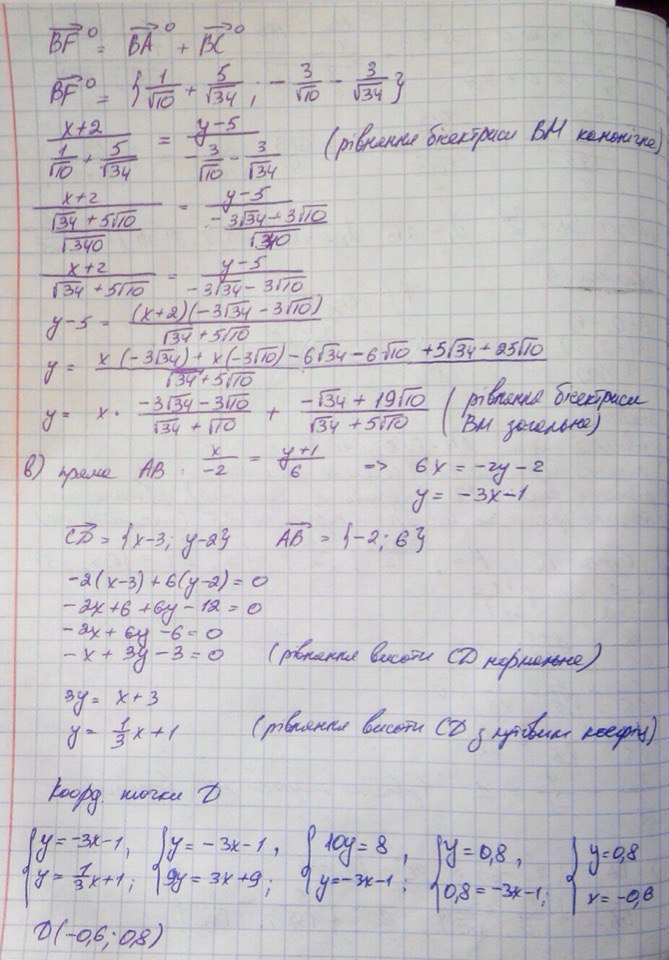 BF⁰ = BA⁰ + BC⁰
BF⁰ = {1/√10 + 5/√34 ; -3/√10 - 3/√34}
(x+2)/(1/√10 + 5/√34) = (y-5)/(-3/√10 - 3/√34) (рівняння бісектриси BM канонічне)
(x+2)/((√34 + 5√10)/√340) = (y-5)/((-3√34 - 3√10)/√340)
(x+2)/(√34 + 5√10) = (y-5)/(-3√34 - 3√10)
y-5 = (x+2)(-3√34 - 3√10)/(√34 + 5√10)
y = (x(-3√34) + x(-3√10) - 6√34 - 6√10 + 5√34 + 25√10)/(√34 + 5√10)
y = x · (-3√34 - 3√10)/(√34 + √10) + (-√34 + 19√10)/(√34 + 5√10) (рівняння бісектриси
BM загальне)
в) пряма AB: x/-2 = (y+1)/6 => 6x = -2y - 2
y = -3x - 1
CD = {x-3; y-2} AB = {-2; 6}
-2(x-3) + 6(y-2) = 0
-2x + 6 + 6y - 12 = 0
-2x + 6y - 6 = 0
-x + 3y - 3 = 0 (рівняння висоти CD нормальне)
3y = x + 3
y = 1/3 x + 1 (рівняння висоти CD з кутовим коефіц)
Коорд. точки D
{y = -3x-1, {y = -3x-1, {10y = 8, {y = 0,8, {y = 0,8
{y = 1/3 x+1; {9y = 3x+9; {y = -3x-1; {0,8 = -3x-1; {x = -0,6
D(-0,6; 0,8)